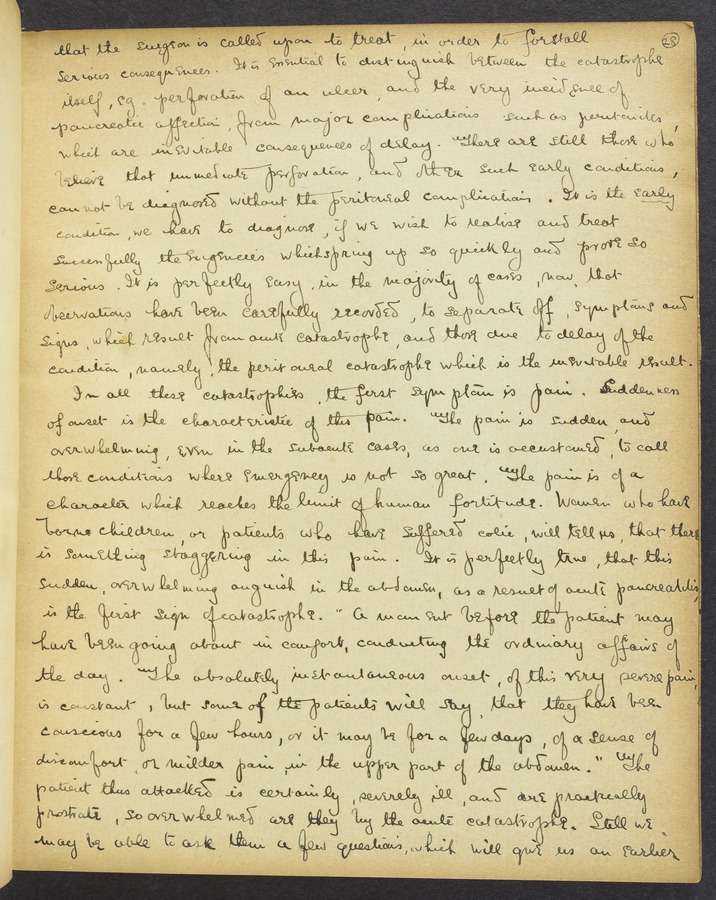 25
that the surgeon is called upon to treat, in order to forstall
serious consequences. It is essential to distinguish between the catastrophe
itself, eg. perforation of an ulcer, and the very incidence of
pancreatic affection, from major complications such as peritonitis,
which are inevitable consequences of delay. There are still those who
believe that immediate perforation, and other such early conditions,
cannot be diagnosed without the peritoneal complications. It is the early
condition, we have to diagnose, if we wish to realise and treat
successfully the urgencies which spring up so quickly and prove so
serious. It is perfectly easy, in the majority of cases, now, that
observations have been carefully recorded, to separate off, symptoms and
signs, which result from acute catastrophe, and those due to delay of the
condition, namely, the peritoneal catastrophe which is the inevitable result.
In all these catastrophies, the first symptom is pain. Suddenness
of onset is the characteristic of this pain. "The pain is sudden, and
overwhelming, even in the subacute cases, as one is accustomed, to call
those conditions where emergency is not so great, "The pain is of a
character which reaches the limit of human fortitude. Women who have
borne children, or patients who have suffered colic, will tell us, that there
is something staggering in this pain. It is perfectly true, that this
sudden, overwhelming anguish in the abdomen, as a result of acute pancreatitis,
is the first sign of catastrophe. " A moment before the patient may
have been going about in comfort, conducting the ordinary affairs of
the day. "The absolutely instantaneous onset, of this very severe pain,
is constant, but some of the patients will say, that they have been
conscious for a few hours, or it may be for a few days, of a sense of
discomfort, or milder pain, in the upper part of the abdomen." "The
patient thus attacked is certainly, severely ill, and are practically
prostrate, so overwhelmed are they by the acute catastrophe. Still we
may be able to ask them a few questions, which will give us an earlier